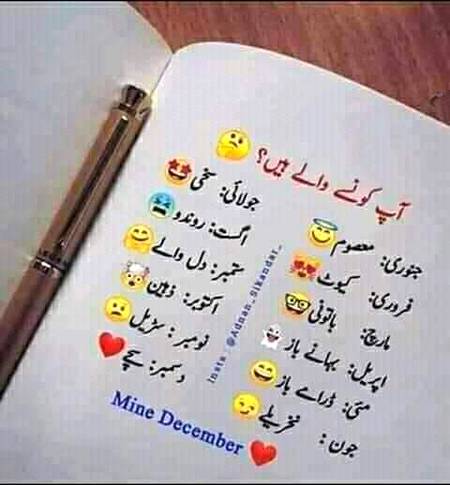 آپ کونے والے ہیں؟ 🤔
جنوری: معصوم 😇
فروری: کیوٹ 😻
مارچ: باتونی 🤓
اپریل: بہانے باز 👻
مئی: ڈرامے باز 😅
جون: نخریلے 😉
جولائی: سخی 🤩
اگست: روندو 😫
ستمبر: دل والے 🤗
اکتوبر: ذہین 🤯
نومبر: سڑیل 😦
دسمبر: سچے ❤️
Insta : @Adnan_Sikandar_
Mine December ❤️